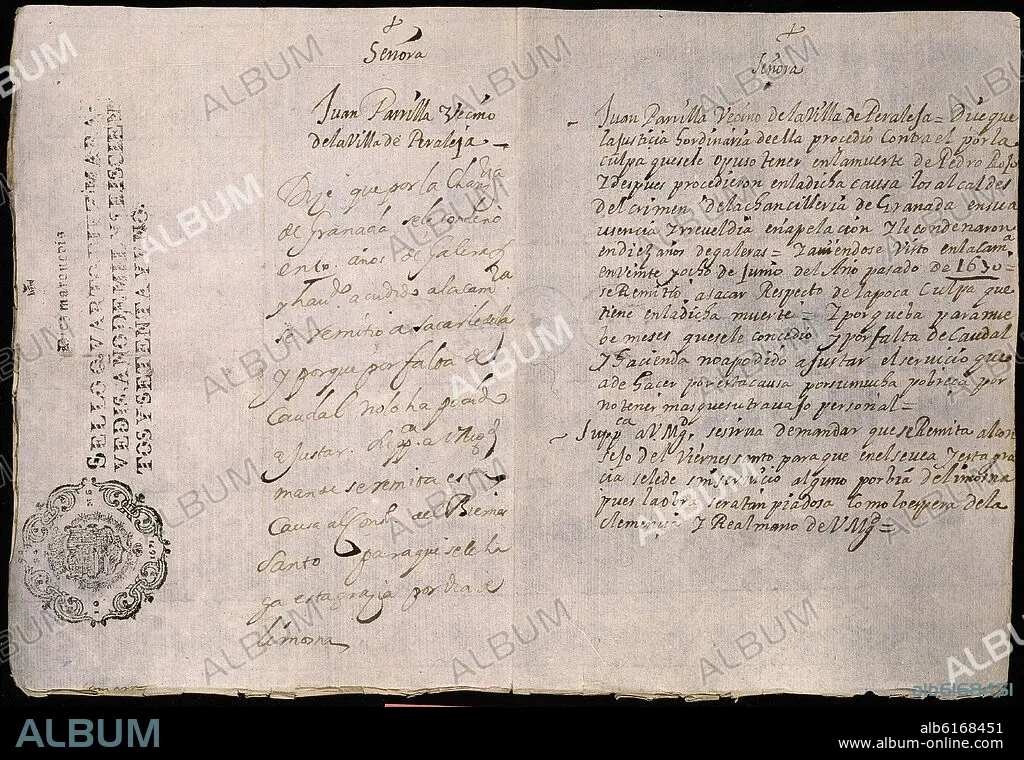 Señora
Juan Parrilla Vecino
de la Villa de Peraleja
Dize que por la Chanz.ria
de Granada se le condeno
en años de Galeras
y hauido acudido a la cam.ra
se remitio a sacarle de la
y porque por falta de
caudal no lo ha podido
ajustar. Supp.ca a V Mag.d
mande se remita esta
causa al Cons.o del Biernes
Santo para que se le ha
ga esta grazia por via de
limosna
SELLO QVARTO DIEZ MARA-
VEDIS, AÑO DE MIL Y SEISCIEN
TOS Y SETENTA Y VNO.
Diez marauedis
Señora
Juan Parrilla Vecino de la Villa de Peraleja = Dice que
la justicia hordinaria de ella procedio contra el por la
culpa que se le opuso tener en la muerte de Pedro Rojo
Y despues procedieron en la dicha causa los alcaldes
del crimen de la chancilleria de Granada en su a
usencia Y rreveldia en apelacion Y le condenaron
en diez años de galeras = Y auiendose visto en la cam.a
en Veinte y ocho de Junio del Año pasado de 1670 =
se Remitio a sacar Respecto de la poca culpa que
tiene en la dicha muerte = Y porque
be meses que se le concedio Y por falta de Caudal
Y Hacienda no a podido ajustar el servicio que
a de hacer por esta causa por su mucha pobreça por
no tener mas que su travajo personal =
Supp.ca a V Mg.d se sirua de mandar que se Remita al con
sejo del Viernes santo para que en el se vea Y esta gra
cia se le de sin servicio alguno por bia de limosna
pues la obra sera tan piadosa como lo espera de la
clemencia Y Real mano de V Mg.d =
ALBUM
alb6168451
alb6168451
www.album-online.com